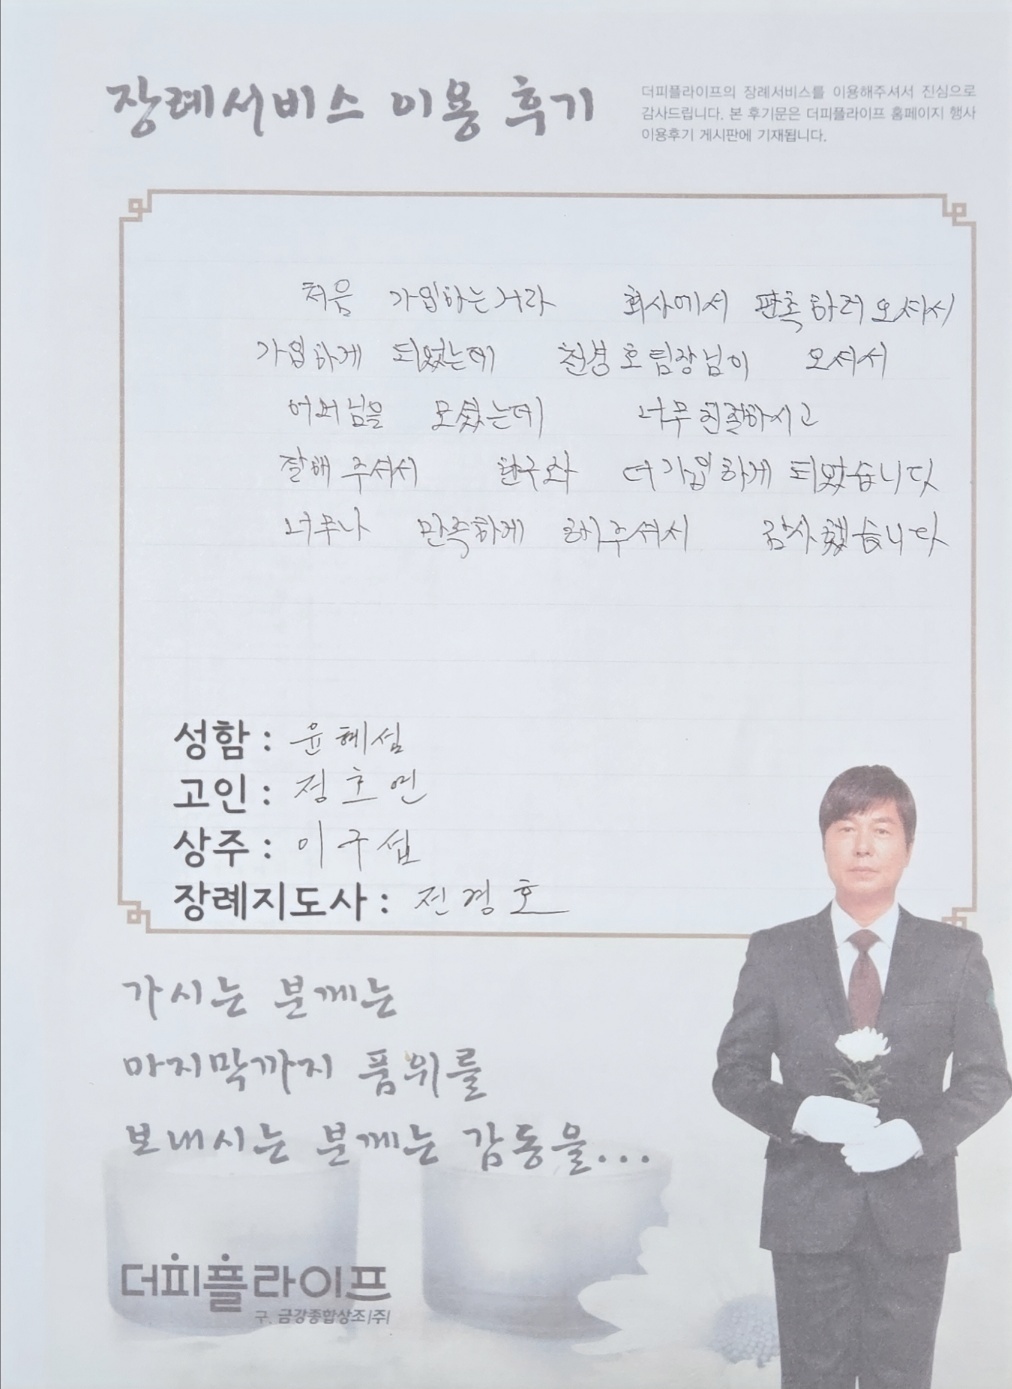 장례서비스 이용 후기
더피플라이프의 장례서비스를 이용해주셔서 진심으로
감사드립니다. 본 후기문은 더피플라이프 홈페이지 행사
이용후기 게시판에 기재됩니다.
처음 가입하는거라 회사에서 판촉하러오셔서
가입하게 되었는데 전경호팀장님이 오셔서
어머님을 모셨는데 너무친절하시고
잘해주셔서 한구좌 더가입하게 되었습니다
너무나 만족하게 해주셔서 감사했습니다
성함 : 윤혜섬
고인 : 정호연
상주 : 이구섭
장례지도사 : 전경호
가시는 분께는
마지막까지 품위를
보내시는 분께는 감동을...
더피플라이프
구. 금강종합상조(주)